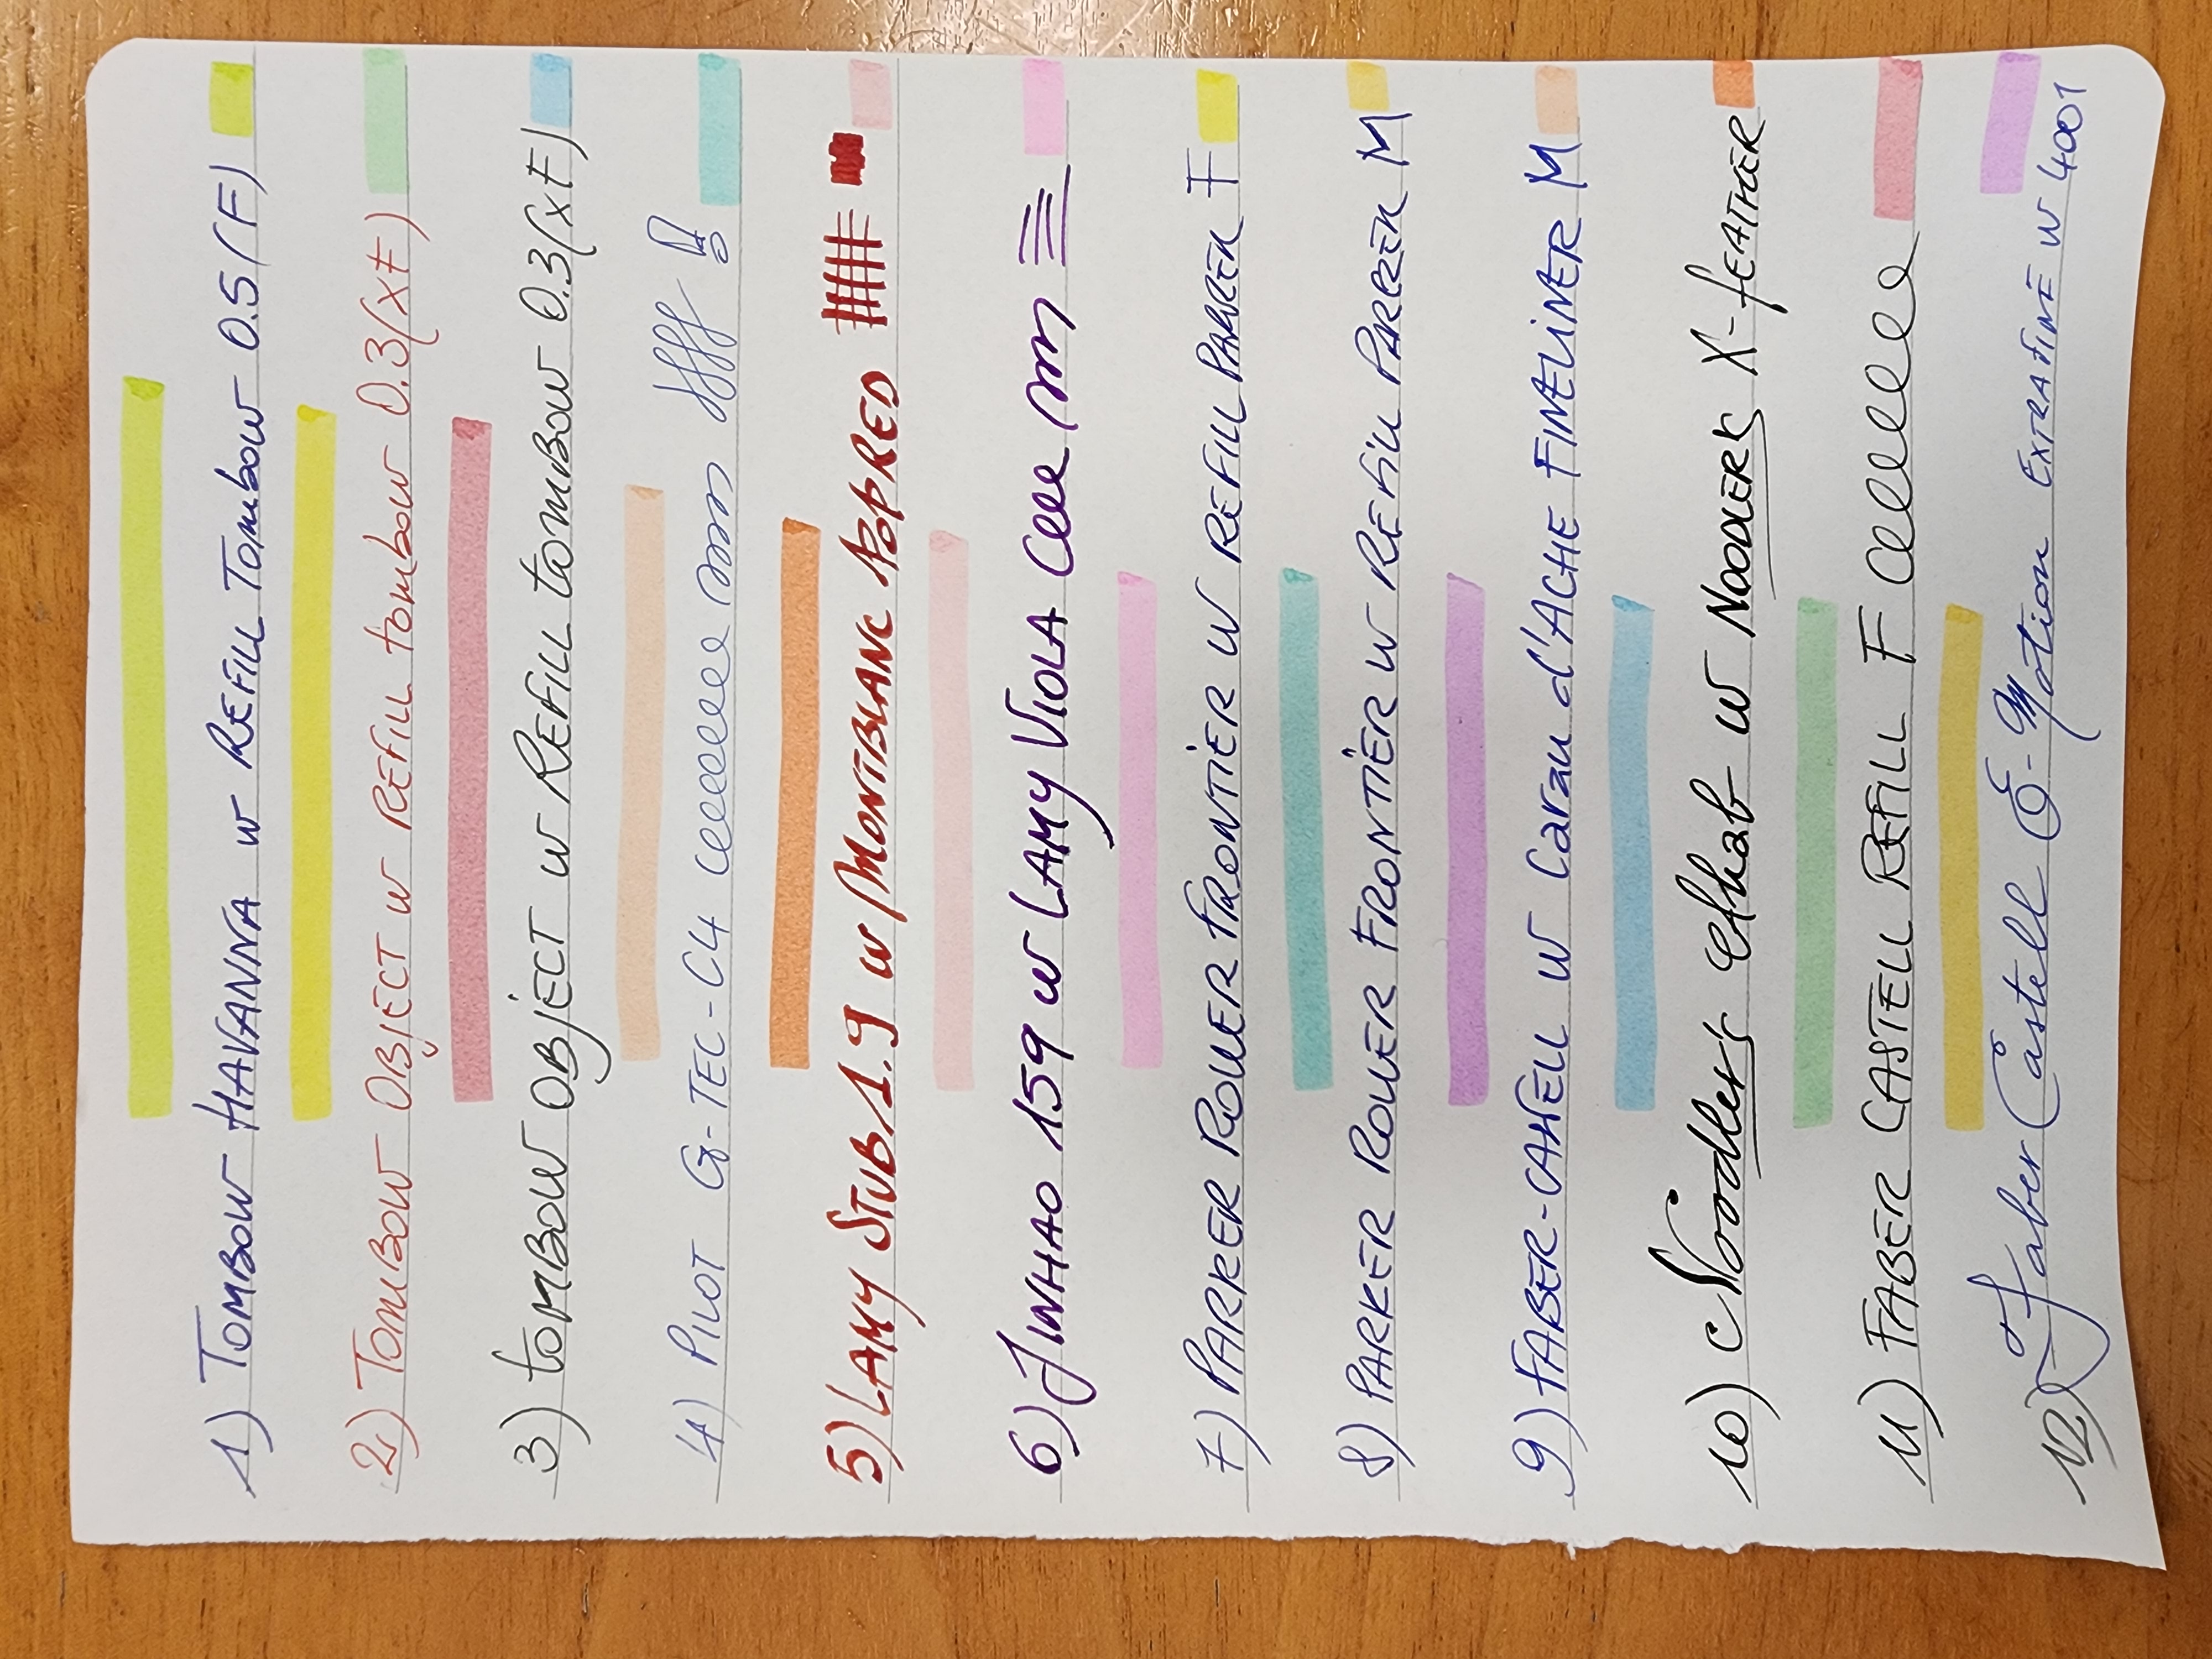 1) TOMBOW HAVANNA W REFILL TOMBOW 0.5 (F)
2) TOMBOW OBJECT W REFILL tombow 0.3 (XF)
3) tOMBOW OBJECT W REFILL tOMBOW 0.3 (XF)
4) PILOT G-TEC-C4 eeeeeee mm fffff !
5) LAMY STUB 1.9 W MONTBLANC
6) JINHAO 159 W LAMY VIOLA eeee m
7) PARKER ROLLER FRONTIER W REFILL PARKER F
8) PARKER ROLLER FRONTIER W REFILL PARKER M
9) FABER-CASTELL W Caran d'ACHE FINELINER M
10) Noodlers Ahab W NOODLERS X-FEATHER
11) FABER CASTELL REFILL F eeeeeee
12) Faber Castell E-Motion EXTRAFINE W 4001